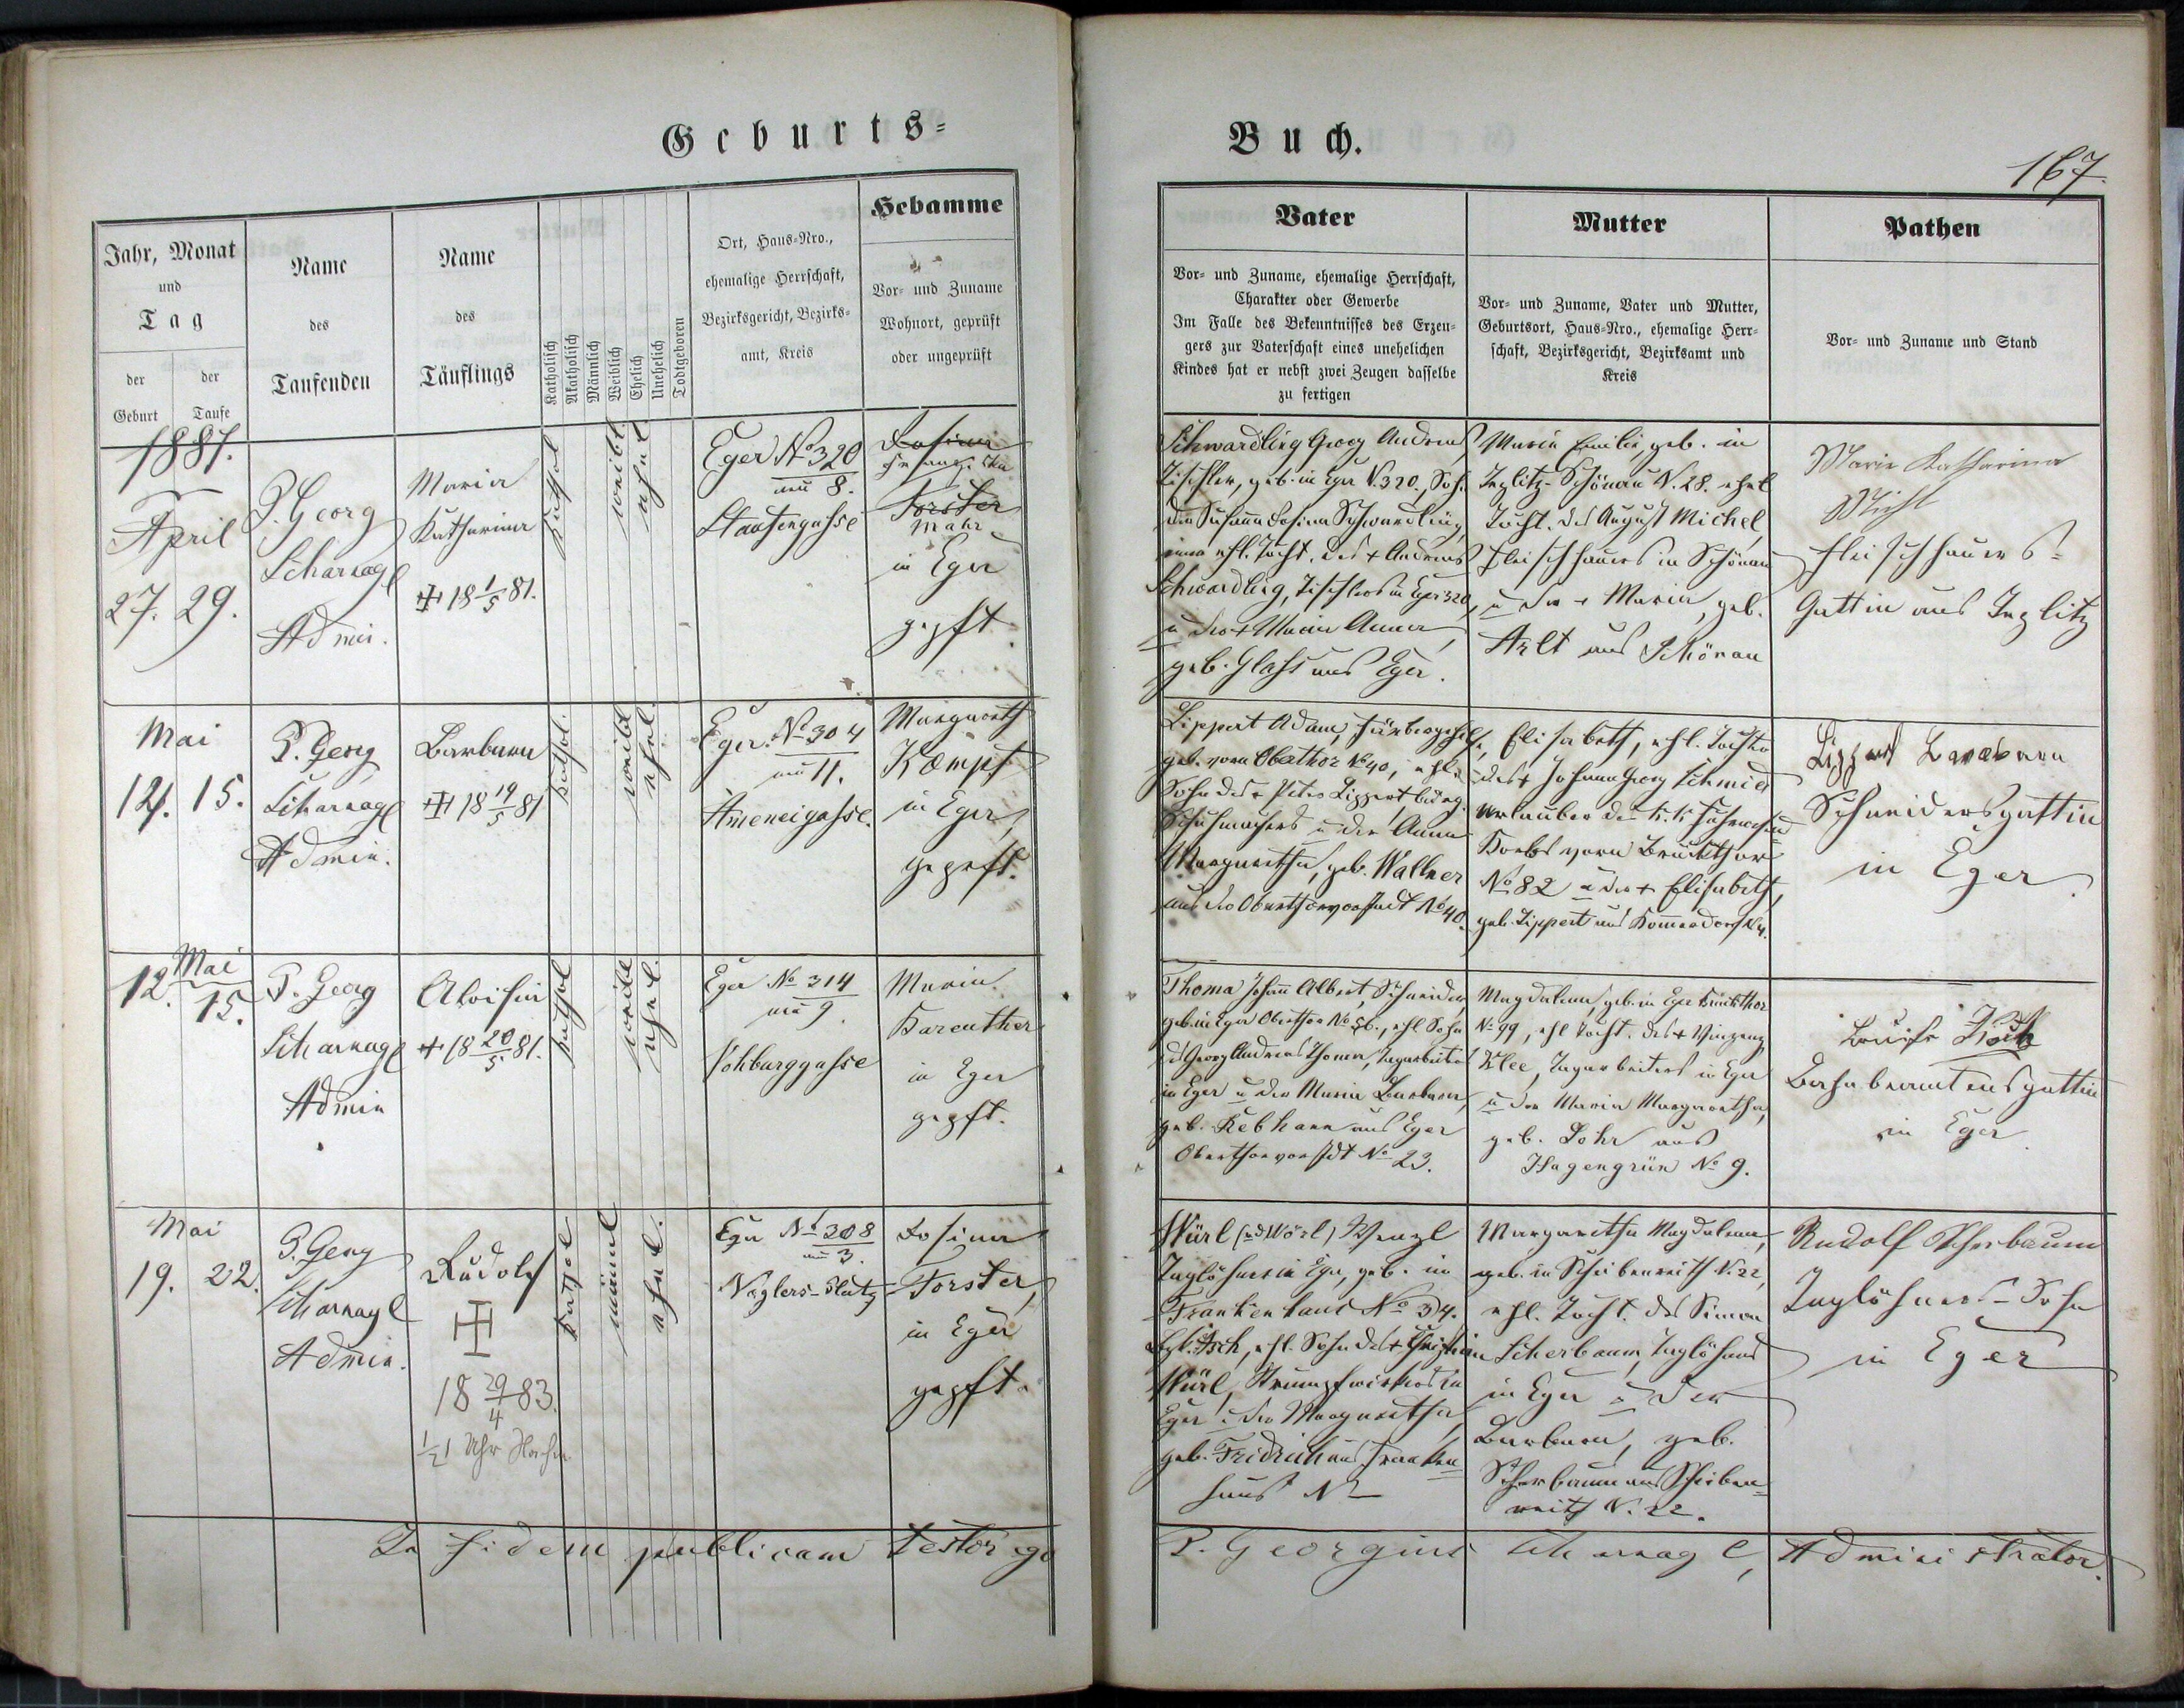 Geburts=
Jahr, Monat
und
Tag
der Geburt
der Taufe
Name
des
Taufenden
Name
des
Täuflings
Katholisch
Akatholisch
Männlich
Weiblich
Ehelich
Unehelich
Todtgeboren
Ort, Haus=Nro.,
ehemalige Herrschaft,
Bezirksgericht, Bezirks=
amt, Kreis
Hebamme
Vor= und Zuname
Wohnort, geprüft
oder ungeprüft
1881.
April
27. 29.
P. Georg
Scharnagl
Admin.
Maria
Katharina
18 1/5 81.
kathol
weibl.
ehel
Eger No 320
neu 8.
Steingasse
Rosina
Forster
Mahr
in Eger
gepft.
Mai
12. 15.
P. Georg
Scharnagl
Admin.
Barbara
18 19/5 81
kathol.
weibl
ehel.
Eger No 304
neu 11.
Ameneigasse.
Margareth
Kempf
in Eger,
geprft.
Mai
12. 15.
P. Georg
Scharnagl
Admin
Aloisia
+ 18 20/5 81.
kathol
weibl
ehel.
Eger No 314
neu 9.
Vohburggasse
Maria
Bareuther
in Eger
gepft.
Mai
19. 22.
P. Georg
Scharnagl
Admin.
Rudolf
18 29/4 83.
1/2 1 Uhr Nachm
kathol
männl
ehel.
Eger No 308
neu 3.
Rosina
Forster,
in Eger
gepft.
In fidem publicam testor ego
Buch.
167.
Vater
Vor= und Zuname, ehemalige Herrschaft,
Charakter oder Gewerbe
Im Falle des Bekenntnisses des Erzeu=
gers zur Vaterschaft eines unehelichen
Kindes hat er nebst zwei Zeugen dasselbe
zu fertigen
Mutter
Vor= und Zuname, Vater und Mutter,
Geburtsort, Haus=Nro., ehemalige Herr=
schaft, Bezirksgericht, Bezirksamt und
Kreis
Pathen
Vor= und Zuname und Stand
Schwardling Georg Andreas
Tischler, geb. in Eger N. 320, Sohn
der Susanna Rosina Schwardling,
einer ehl. Tocht. des + Andreas
Schwardling, Tischlers in Eger 320,
u der + Maria Anna
geb. Glass aus Eger.
Maria Emilie, geb. in
Teplitz-Schönau N. 28. ehel
Tocht. des August Michel,
Fleischhauers in Schönau
u der + Maria, geb.
Arlt aus Schönau
Maria Katharina
Fleischhauers=
Gattin aus Teplitz
Lippert Adam, Färbergeselle,
geb. vorm Oberthor No 40, ehl.
Sohn des + Peter Lippert, bürg.
Schuhmachers u der Anna
Margaretha, geb. Wallner
aus der Oberthorvorstadt No 40.
Elisabeth, ehl. Tochter
des + Johann Georg Schmied
Urlauber des k. k. Fuhrwesen
Korps vorm Bruckthor
No 82 u der + Elisabeth,
geb. Lippert aus Kommerdorf N 4.
Lippert Barbara
Schneidersgattin
in Eger.
Thoma Johann Albert, Schneider
geb. in Eger Oberthor No 56., ehl Sohn
d Georg Andreas Thoma, Tagarbeiter
in Eger u der Maria Barbara,
geb. Rebhann aus Eger
Oberthorvorstdt No 23.
Magdalena, geb. in Eger Bruckthor
No 99, ehl Tocht. des + Vinzenz
Klee, Tagarbeiters in Eger
u der Maria Margaretha,
geb. Lohr aus
Hagengrün No 9.
Louise
Bahnbeamtensgattin
in Eger
Würl (rcte Wörl) Wenzl
Taglöhner in Eger, geb. in
Frankenhaus No 34.
Bzk. Asch, ehl. Sohn des + Christian
Würl, Strumpfwirkers in
Eger u der Margaretha,
geb. Fridrich aus Franken
haus No
Margaretha Magdalena,
geb. in Scheibenreith N. 22,
ehl. Tocht. des Simon
Scherbaum, Taglöhners
in Eger u der
Barbara, geb.
Scherbaum aus Scheiben=
reith N. 22.
Rudolf Scherbaum
Taglöhners=Sohn
in Eger
P. Georgius Scharnagl, Administrator.